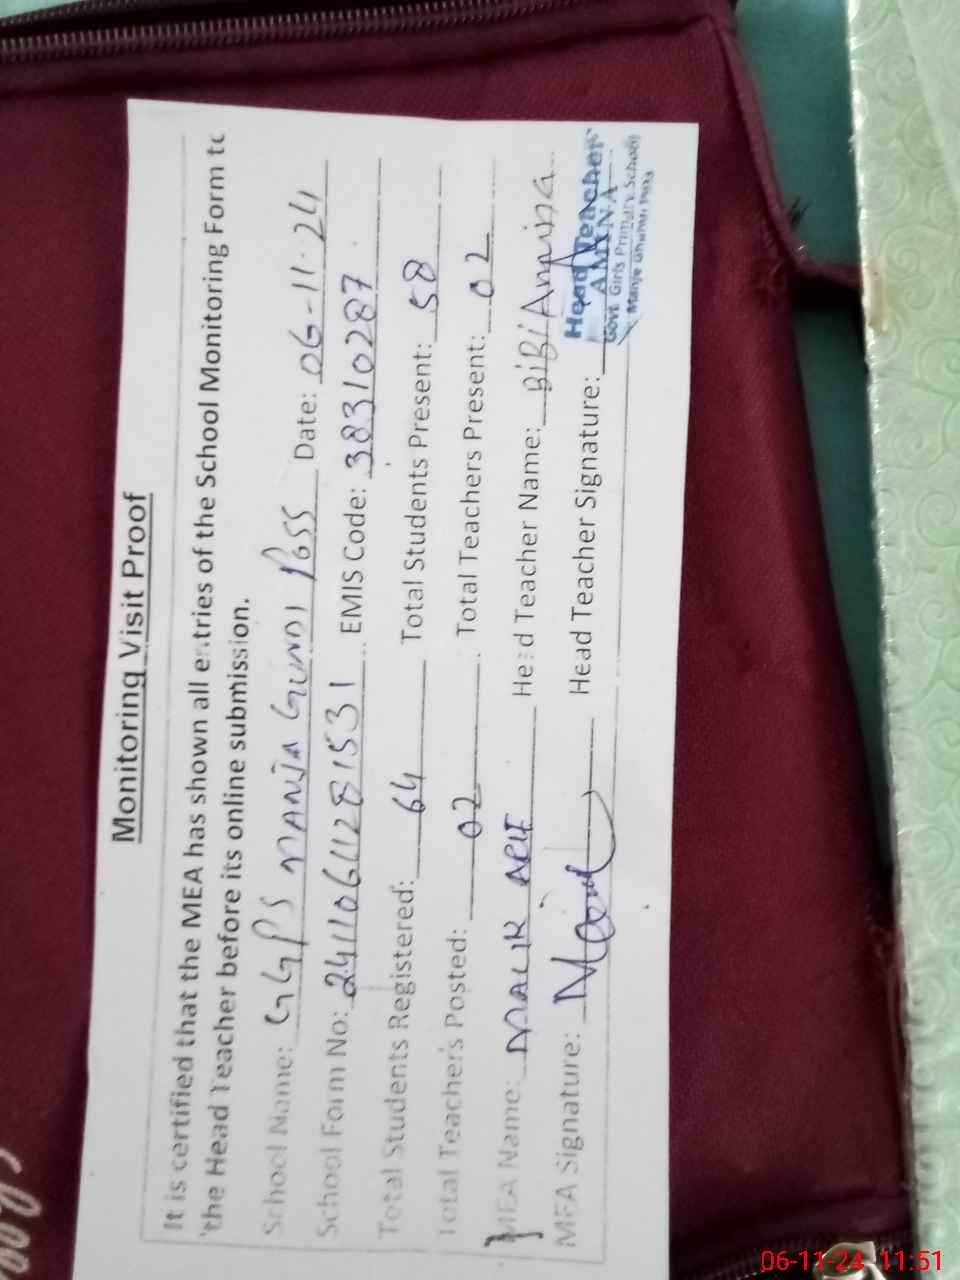 Monitoring Visit Proof
It is certified that the MEA has shown all entries of the School Monitoring Form to
the Head Teacher before its online submission.
School Name: GGPS MANJA GUNDI POSS Date: 06-11-24
School Form No: 24110611281531 EMIS Code: 38310287
Total Students Registered: 64 Total Students Present: 58
Total Teachers Posted: 02 Total Teachers Present: 02
MEA Name: MALIK Head Teacher Name: BiBi Amina
MEA Signature: Head Teacher Signature:
Head Teacher
AMINA
Govt. Girls Primary School
06-11-24 11:51